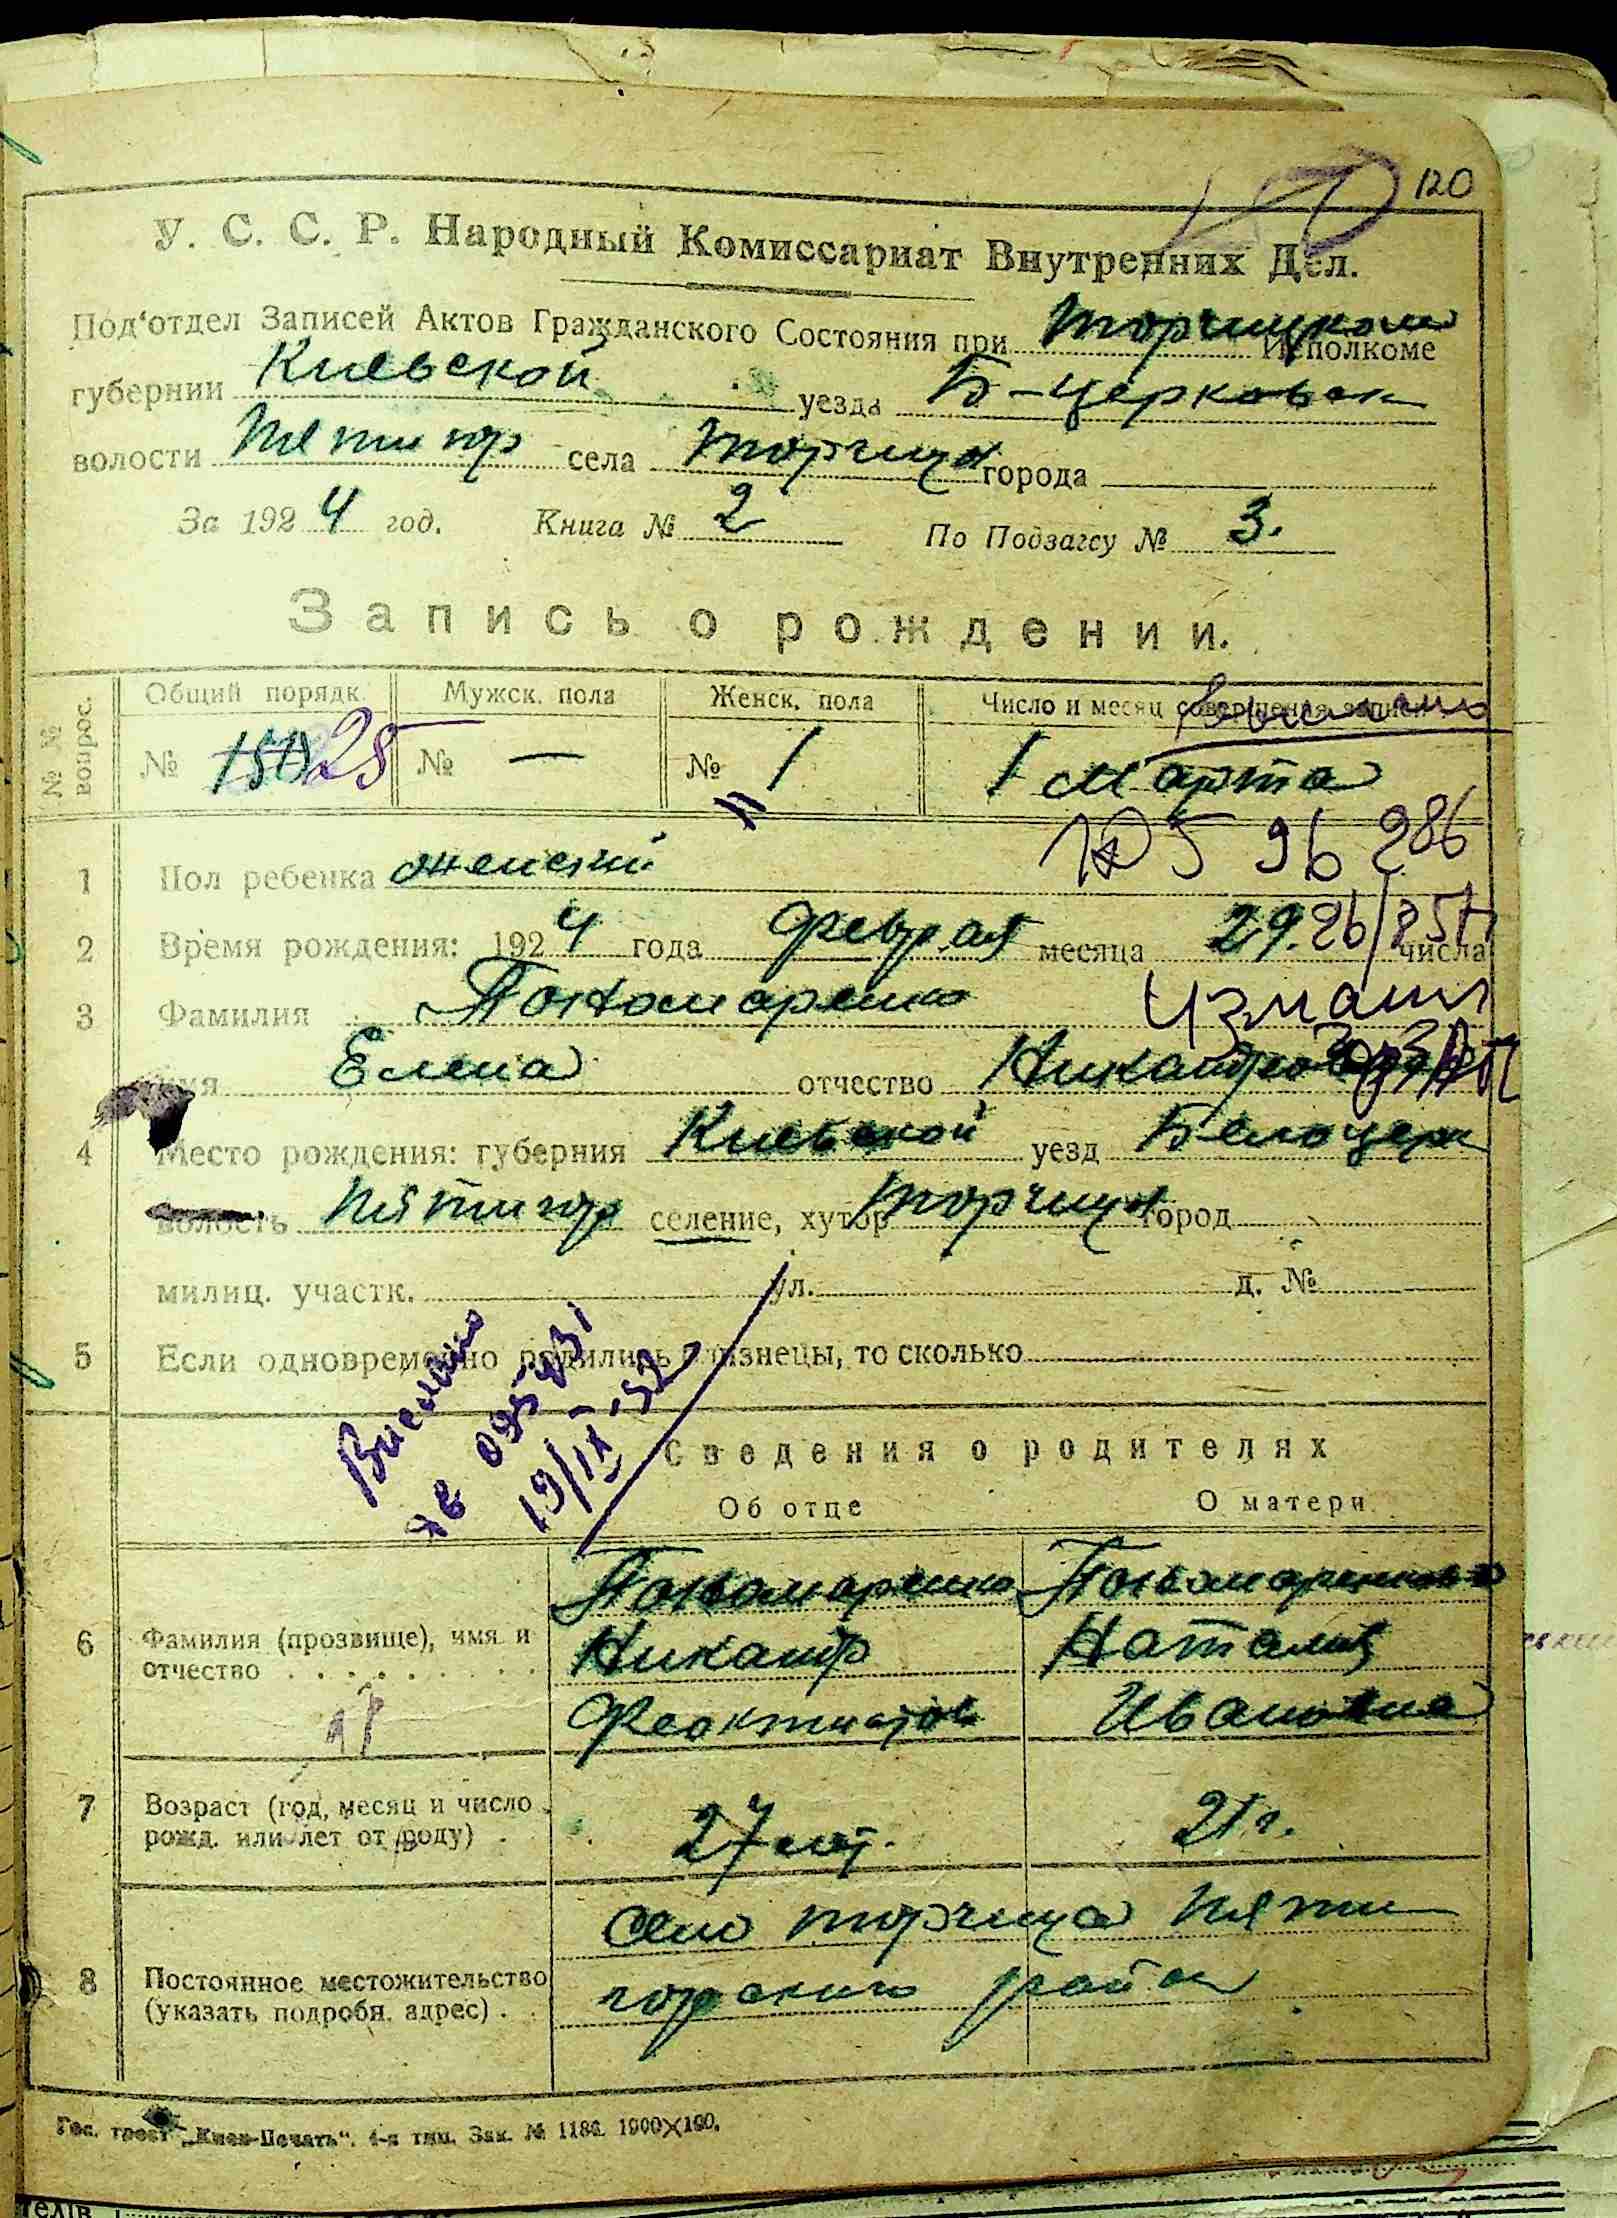 120
У. С. С. Р. Народный Комиссариат Внутренних Дел.
Под‘отдел Записей Актов Гражданского Состояния при Торчицком Исполкоме
губернии Киевской уезда Б-Церковск
волости Пятигор села Торчица города
За 1924 год. Книга № 2 По Подзагсу № 3.
Запись о рождении.
№ № вопрос.
Общий порядк. Мужск. пола Женск. пола Число и месяц совершения записи
№ 25 № — № 1 1 Марта
1 Пол ребенка женский
2 Время рождения: 1924 года Феврал месяца 29. числа
3 Фамилия Пономаренко
Имя Елена отчество
4 Место рождения: губерния Киевской уезд Белоцерк
волость Пятигор селение, хутор Торчица город
милиц. участк. ул. д. №
5 Если одновременно родились близнецы, то сколько
19/IX-52
Сведения о родителях
Об отце О матери
6 Фамилия (прозвище), имя и отчество
Пономаренко Никандр Феоктистов
Наталия Ивановна
7 Возраст (год, месяц и число рожд. или лет от роду)
27 лет. 21 г.
8 Постоянное местожительство (указать подробн. адрес)
село Торчица Пяти
горского района
Гос. трест „Киев-Печать“. 4-я тип. Зак. № 1186. 1900×100.